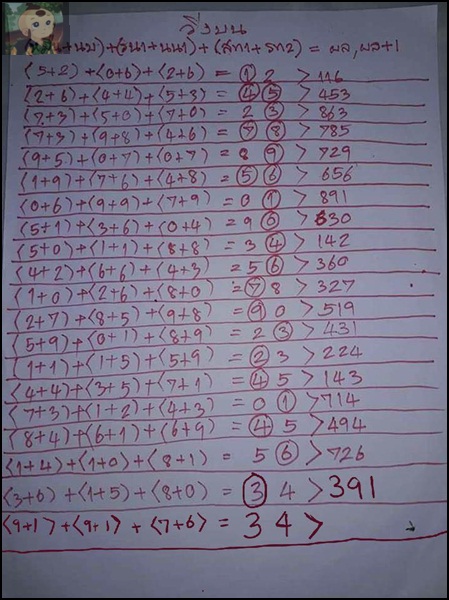 วิ่งบน
น+นบ)+(รน1+นน1)+(สท1+รท2) = ผล,ผล+1
(5+2)+(0+6)+(2+6) = 1 2 > 116
(2+6)+(4+4)+(5+8) = 4 5 > 453
(7+3)+(5+0)+(7+0) = 2 3 > 863
(7+3)+(9+8)+(4+6) = 7 8 > 785
(9+5)+(0+7)+(0+7) = 8 9 > 729
(1+9)+(7+6)+(4+8) = 5 6 > 656
(0+6)+(9+9)+(7+9) = 0 1 > 891
(5+1)+(3+6)+(0+4) = 9 0 > 630
(5+0)+(1+1)+(8+8) = 3 4 > 142
(4+2)+(6+6)+(4+3) = 5 6 > 360
(1+0)+(2+6)+(8+0) = 7 8 > 327
(2+7)+(8+5)+(9+8) = 9 0 > 519
(5+9)+(0+1)+(8+9) = 2 3 > 431
(1+1)+(1+5)+(5+9) = 2 3 > 224
(4+4)+(3+5)+(7+1) = 4 5 > 143
(7+3)+(1+2)+(4+3) = 0 1 > 714
(8+4)+(6+1)+(6+9) = 4 5 > 494
(1+4)+(1+0)+(8+1) = 5 6 > 726
(3+6)+(1+5)+(8+0) = 3 4 > 391
(9+1)+(9+1)+(7+6) = 3 4 >